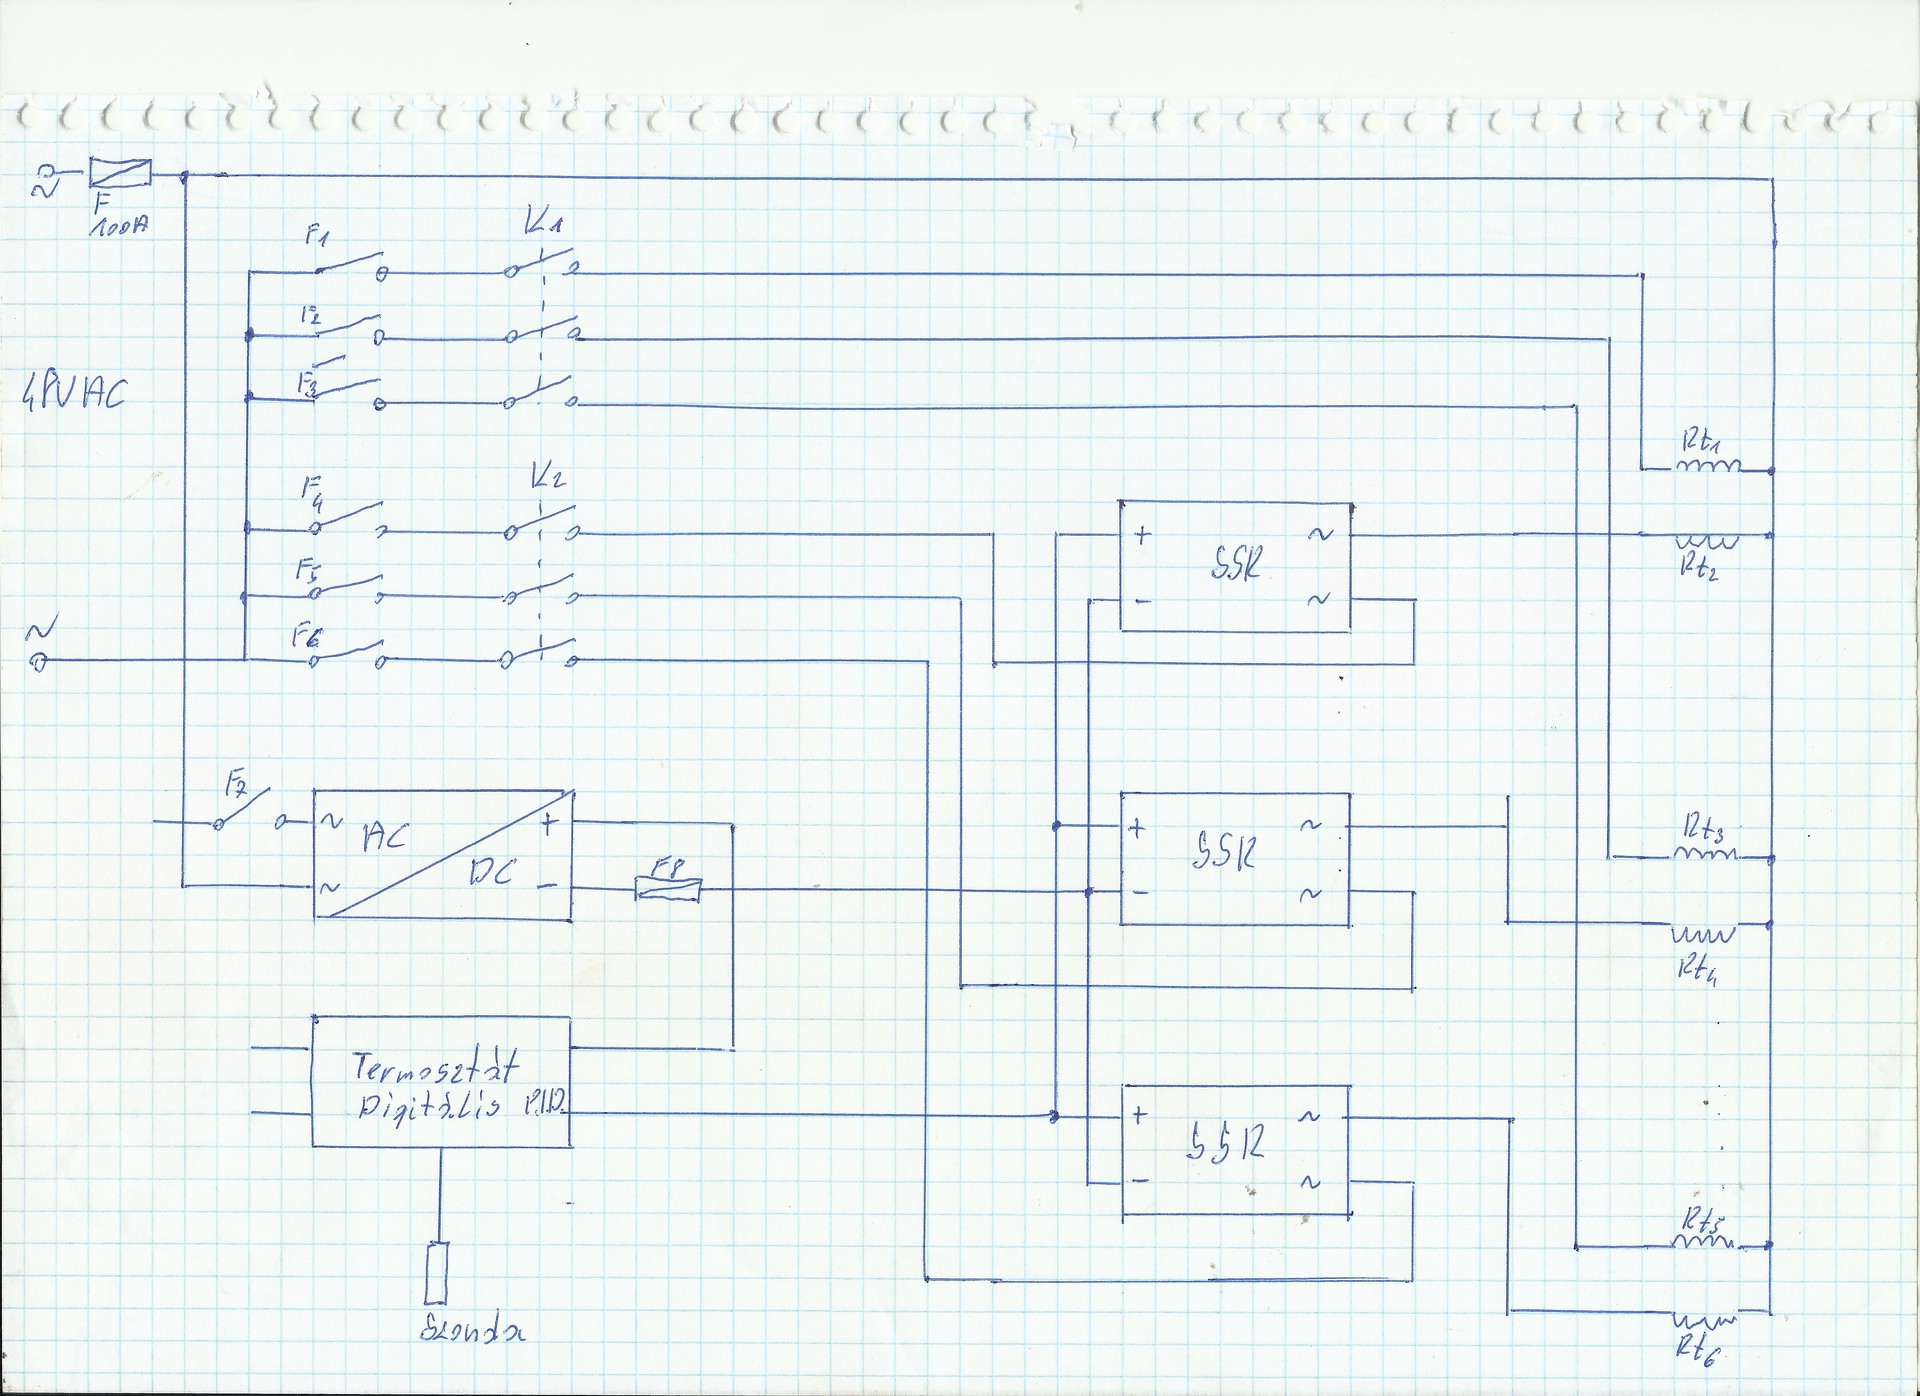 ~
F
100A
F1
K1
F2
F3
48VAC
Rt1
F4
K2
+ ~
SSR
Rt2
- ~
F5
~
F6
F7
~ AC +
DC
~ -
F8
+ ~
SSR
- ~
Rt3
Rt4
Termosztát
Digitális P.I.D.
+ ~
SSR
- ~
Rt5
Szonda
Rt6